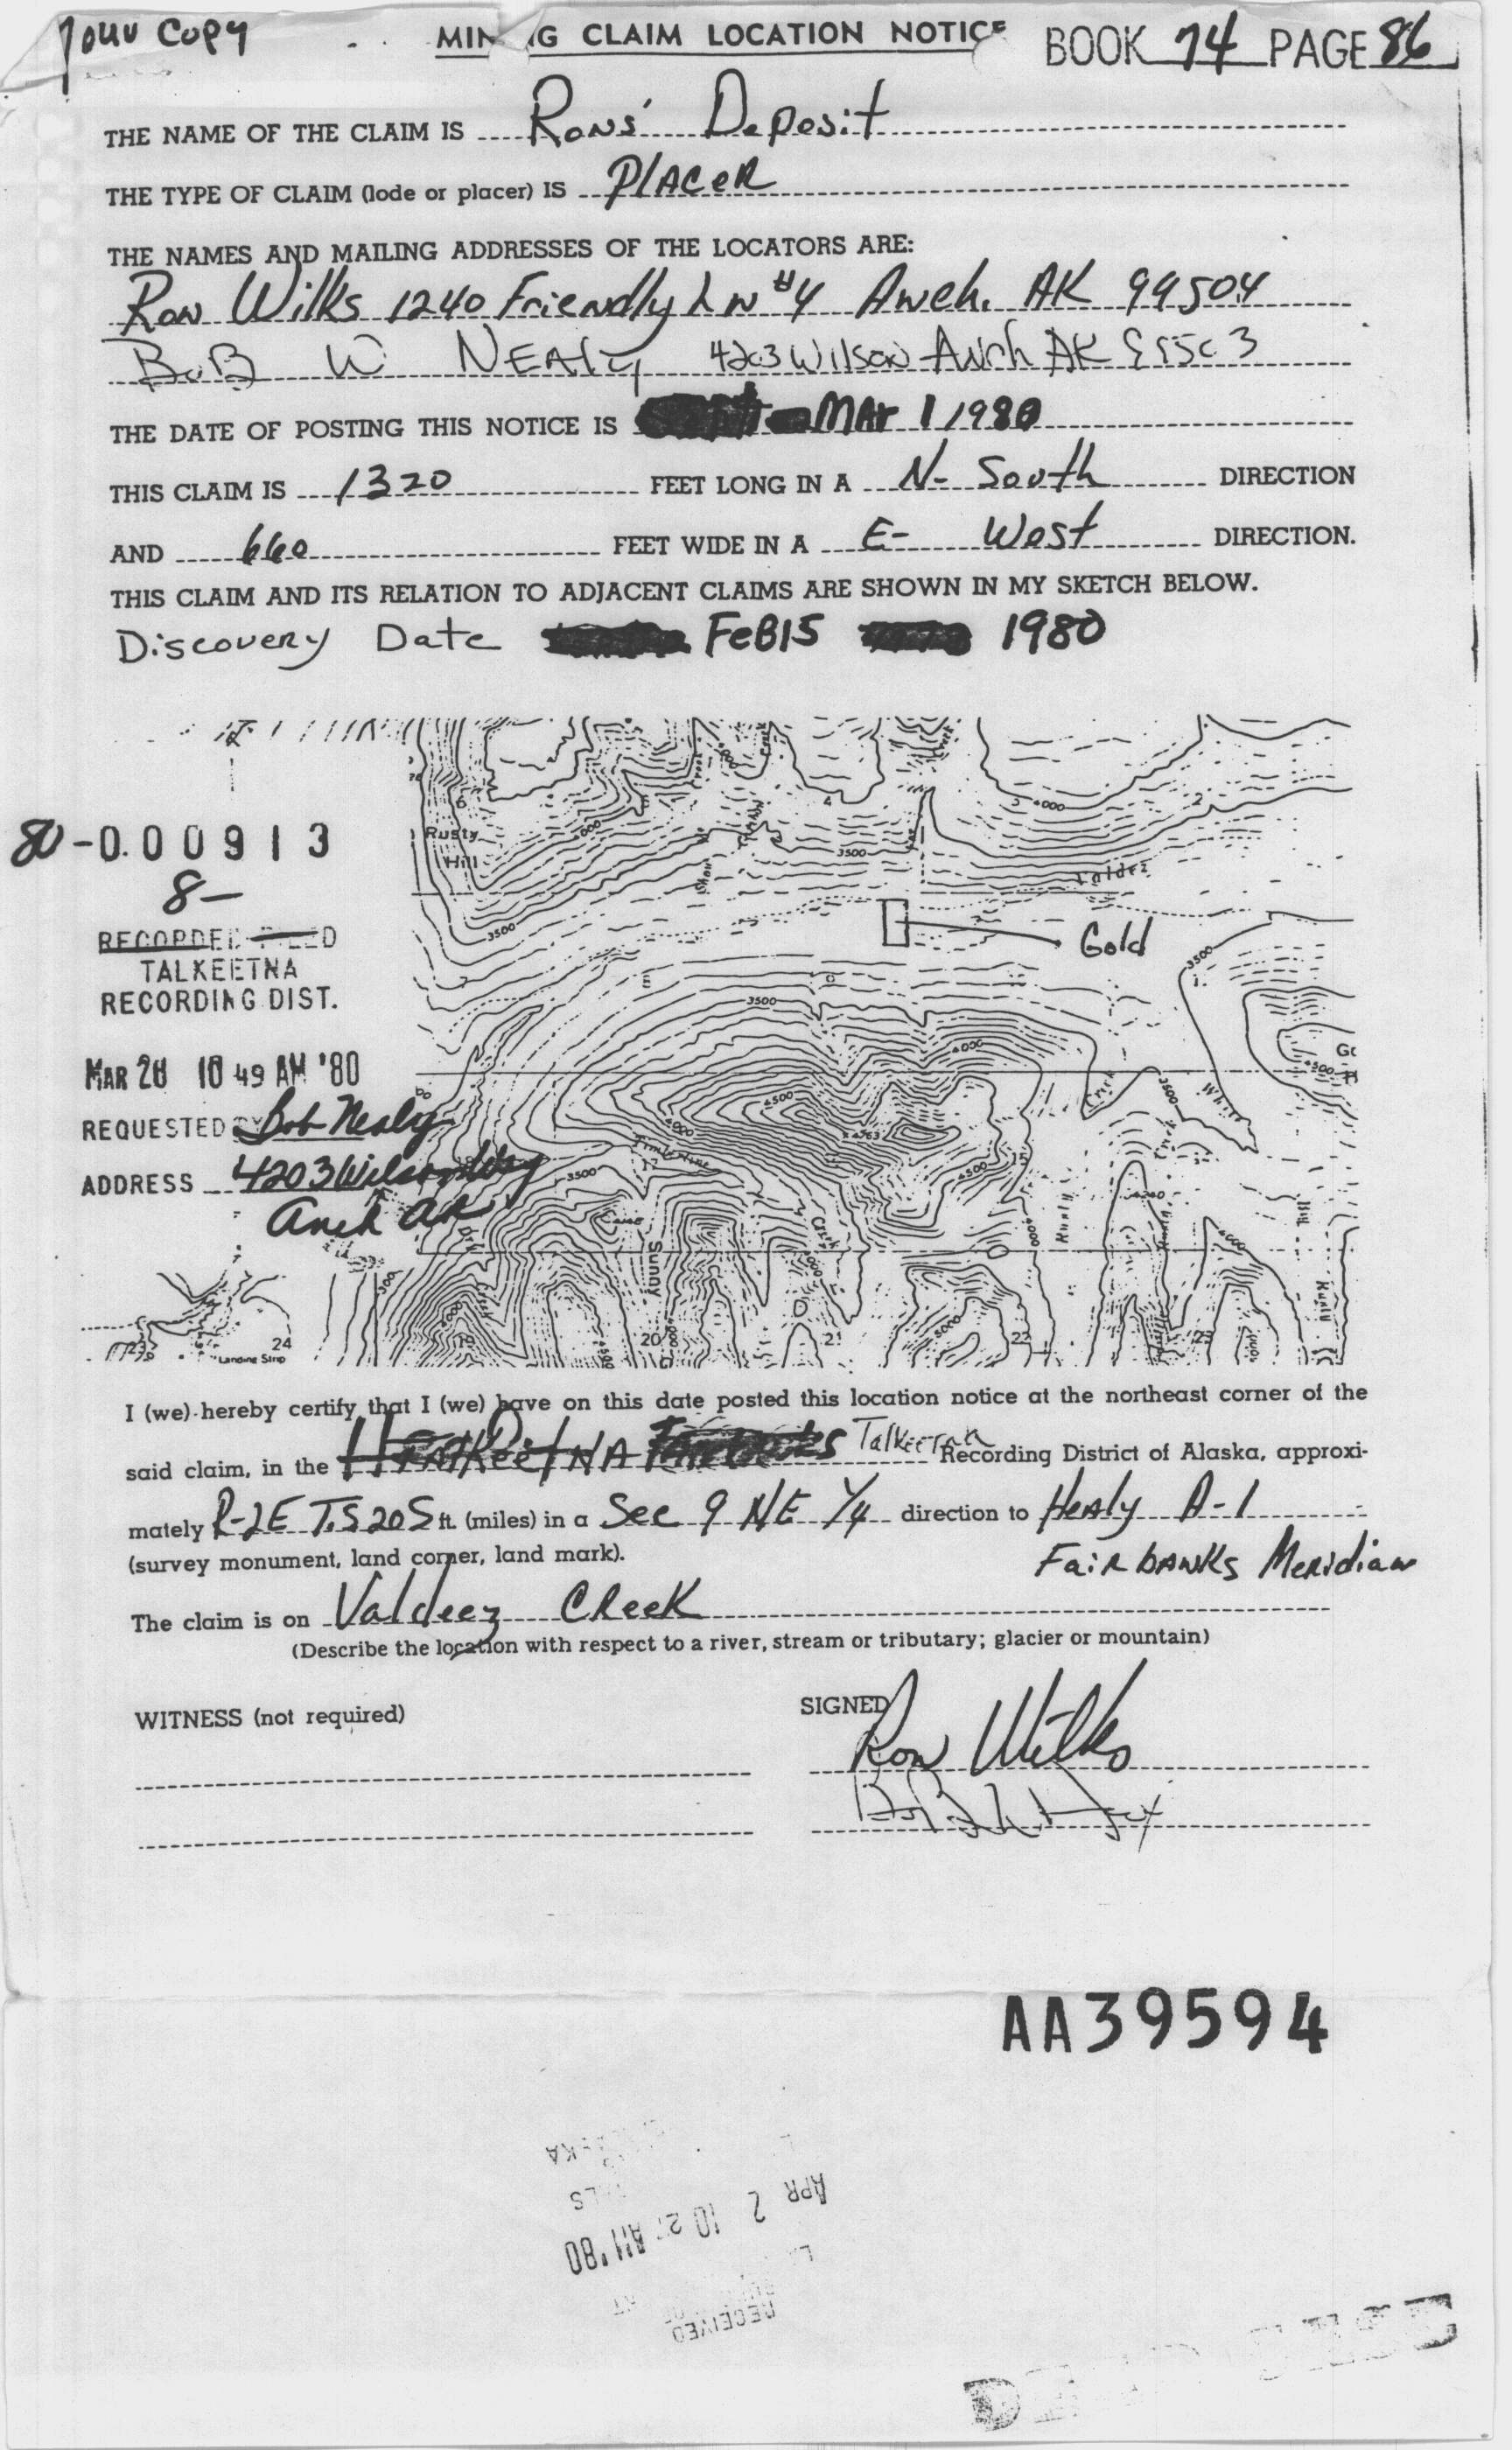 your copy
MINING CLAIM LOCATION NOTICE
BOOK 74 PAGE 86
THE NAME OF THE CLAIM IS Rons' Deposit
THE TYPE OF CLAIM (lode or placer) IS PlAceR
THE NAMES AND MAILING ADDRESSES OF THE LOCATORS ARE:
Ron Wilks 1240 Friendly Ln #4 Anch. AK 99504
BoB W NEAly 4203 Wilson Anch AK
THE DATE OF POSTING THIS NOTICE IS MAr 1 1980
THIS CLAIM IS 1320 FEET LONG IN A N- South DIRECTION
AND 660 FEET WIDE IN A E- West DIRECTION.
THIS CLAIM AND ITS RELATION TO ADJACENT CLAIMS ARE SHOWN IN MY SKETCH BELOW.
Discovery Date FeB15 1980
80-0.00913
8-
RECORDED FILED
TALKEETNA
RECORDING DIST.
MAR 10 49 AM '80
REQUESTED BY Bob Nealy
ADDRESS 4203 Wilson Way
Anch AK
Rusty
Hill
Valdez
Gold
3500
4000
4500
Timberline
Creek
White
Sunny
Landing Strip
20
21
22
23
24
I (we) hereby certify that I (we) have on this date posted this location notice at the northeast corner of the
said claim, in the Talkeetna Recording District of Alaska, approxi-
mately R-2E T.S 20S ft. (miles) in a Sec 9 NE 1/4 direction to Healy A-1
(survey monument, land corner, land mark).
FairbANKs Meridian
The claim is on Valdeez CReeK
(Describe the location with respect to a river, stream or tributary; glacier or mountain)
WITNESS (not required)
SIGNED
Ron Wilks
AA39594
RECEIVED
APR 2 10 AM '80